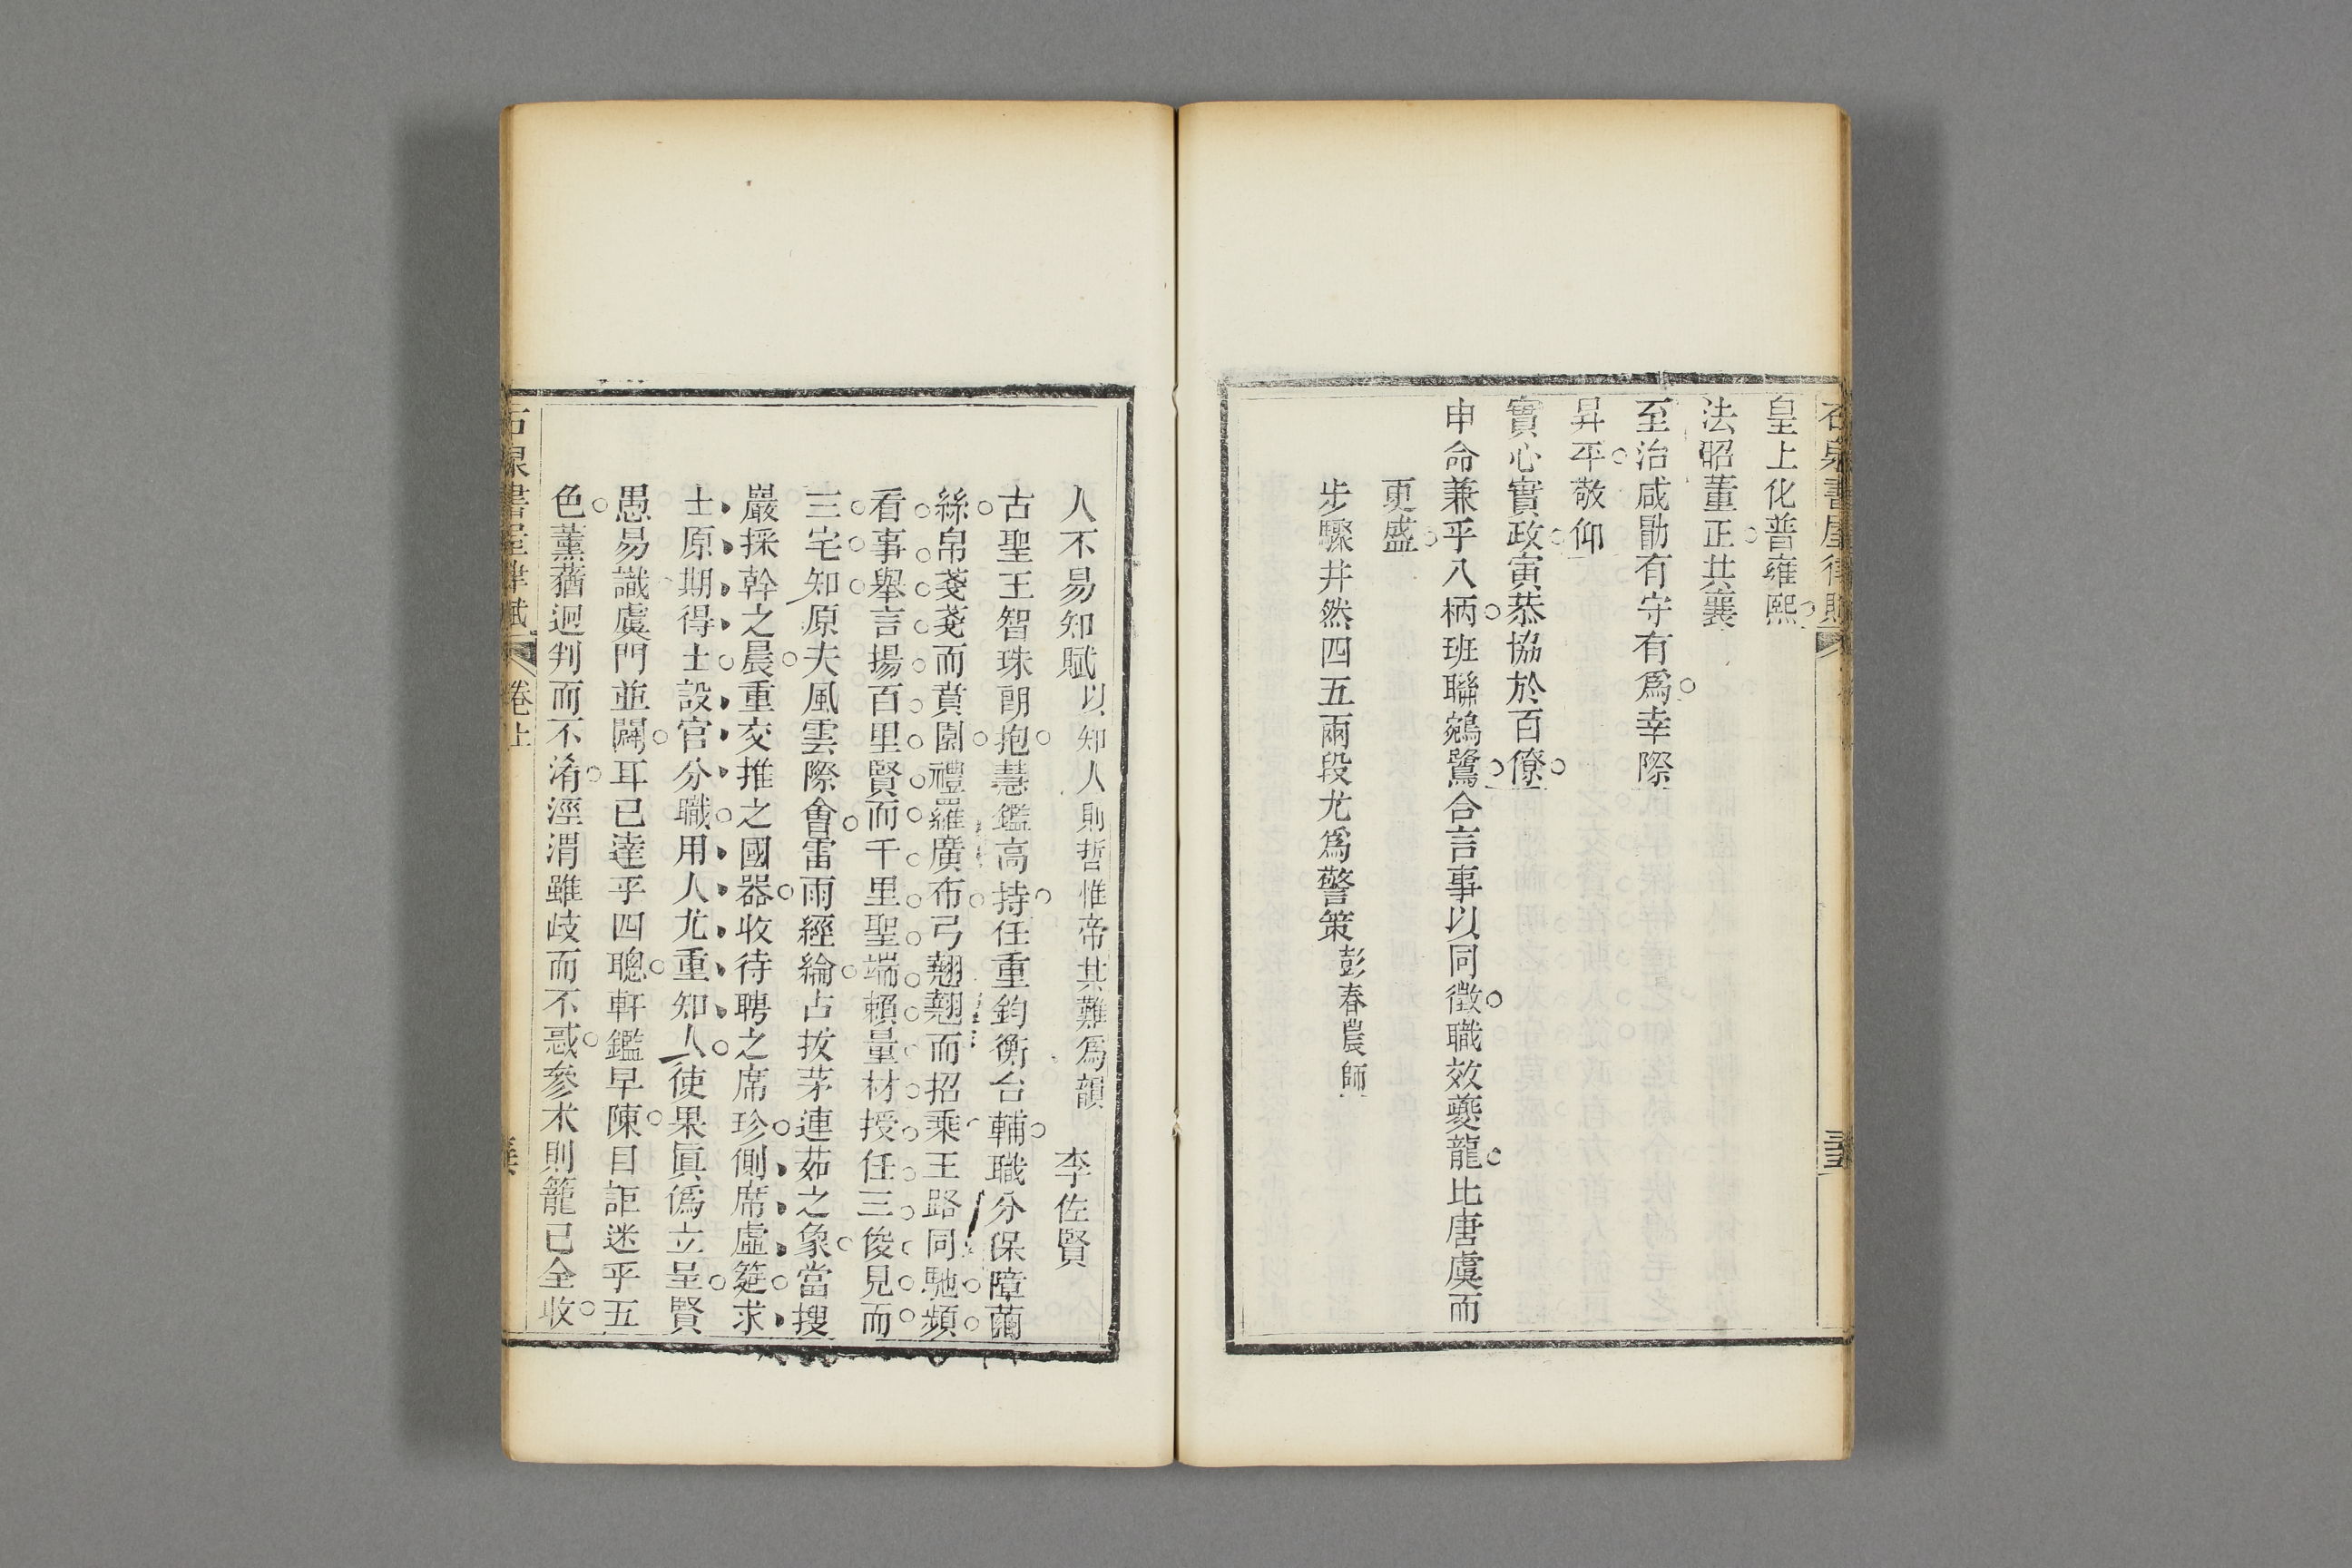 石泉書屋律賦
皇上化普雍熙
法昭董正共襄
至治咸勖有守有爲幸際
昇平敬仰
實心實政寅恭協於百僚
申命兼乎八柄班聯鵷鷺合言事以同徵職效夔龍比唐虞而
更盛
步驟井然四五兩段尤爲警策彭春農師
人不易知賦以知人則哲惟帝其難爲韻 李佐賢
古聖王智珠朗抱慧鑑高持任重鈞衡台輔職分保障繭
絲帛戔戔而賁園禮羅廣布弓翹翹而招乘王路同馳頻
看事舉言揚百里賢而千里聖端賴量材授任三俊見而
三宅知原夫風雲際會雷雨經綸占拔茅連茹之象當搜
嚴採幹之晨重交推之國器收待聘之席珍側席虛筵求
士原期得士設官分職用人尤重知人使果眞僞立呈賢
愚易識虞門並闢耳已達乎四聰軒鑑早陳目詎迷乎五
色薰蕕迥判而不淆涇渭雖歧而不惑參朮則籠已全收
石泉書屋律賦 卷上